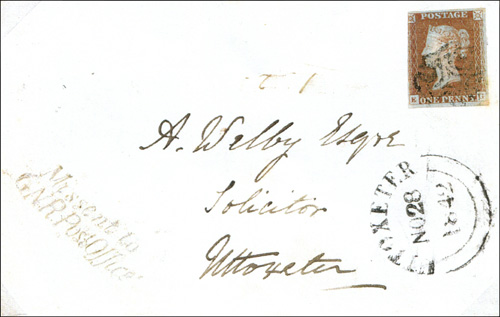 POSTAGE
ONE PENNY
A. Welby Esqre
Solicitor
Uttoxeter
Missent to
G.N.R. Post Office
UTTOXETER
NO 28